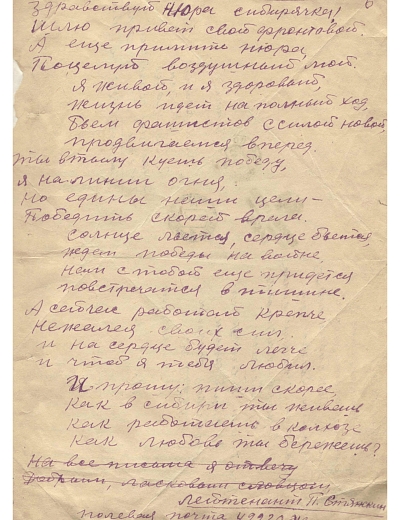 Здравствуй Нюра сибирячка!
Шлю привет свой фронтовой.
А еще примите Нюра,
Поцелуй воздушный мой.
Я живой, и я здоровый,
Жизнь идет на полный ход,
Бьем фашистов с силой новой,
продвигаемся вперед.
Ты в тылу куешь победу,
я на линии огня,
Но едины наши цели-
Победить скорей врага.
Солнце льется, сердце бьется,
Ждем победы на войне,
Нам с тобой еще придется
повстречатся в тишине.
А сейчас работай крепче
Не жалея своих сил
и на сердце будет легче
и чтоб я тебя любил.
И прошу: пиши скорее
Как в сибири ты живешь
Как работаешь в колхозе
Как любовь ты бережешь?
На все письма я отвечу
ласковым словцом
Лейтенант П.
полевая почта